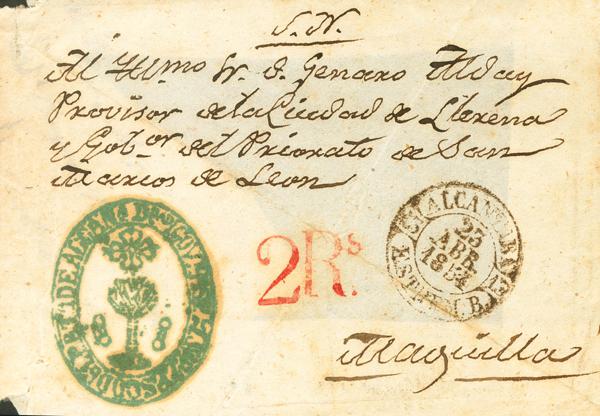 S. N.
Al Yllmo Sr. D. Genaro Alday
Provisor de la Ciudad de Llerena
y Gobor del Priorato de San
Marcos de Leon
2Rs.
ALCANTARA
25
ABR
EST
B.
Maguilla